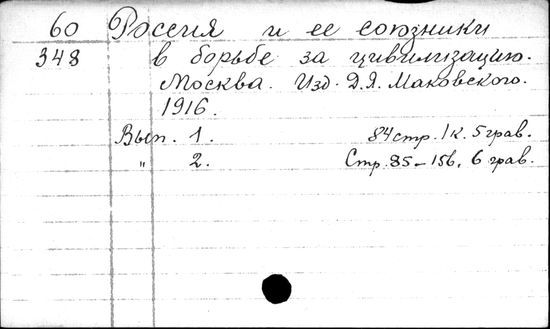 60 Россия и ее союзники
348 в борьбе за цивилизацию.
Москва. Изд. Д.Я. Маковского.
1916.
Вып. 1. 84 стр. 1 к. 5 грав.
„ 2. Стр. 85-156, 6 грав.